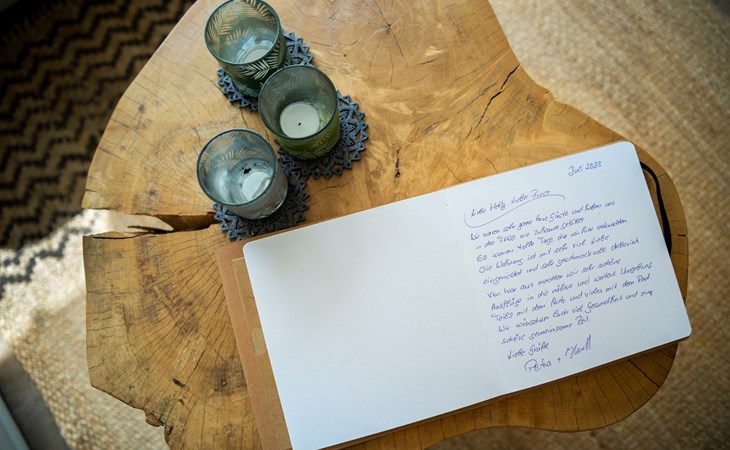 Juli 2023
Liebe
Wir waren sehr gerne Eure Gäste und haben uns
in der zuhause gefühlt.
Es waren tolle Tage die wir hier verbrachten
Die Wohnung ist mit sehr viel Liebe
eingerichtet und sehr geschmackvoll dekoriert
Von hier aus machten wir sehr schöne
Ausflüge in die nähere und weitere Umgebung
Teils mit dem Auto und vieles mit dem Rad.
Wir wünschen Euch viel Gesundheit und eine
schöne gemeinsame Zeit.
Liebe Grüße
Petra +